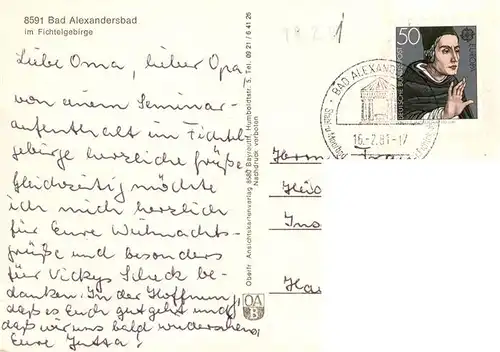 8591 Bad Alexandersbad
im Fichtelgebirge
Liebe Oma, lieber Opa
von einem Seminar-
aufenthalt im Fichtel
gebirge herzliche Grüße
Gleichzeitig möchte
ich mich herzlich
für Eure Weihnachts-
grüße und besonders
für Vickys Scheck be-
danken. In der Hoffnung,
daß es Euch gut geht und
daß wir uns bald wiedersehen,
Eure Jutta
Oberfr. Ansichtskartenverlag 8580 Bayreuth, Humboldtstr. 3, Tel. 09 21 / 6 41 26
Nachdruck verboten
OA
B
50
EUROPA
DEUTSCHE BUNDESPOST
BAD ALEXAN
16.-2.81-17
Herrn